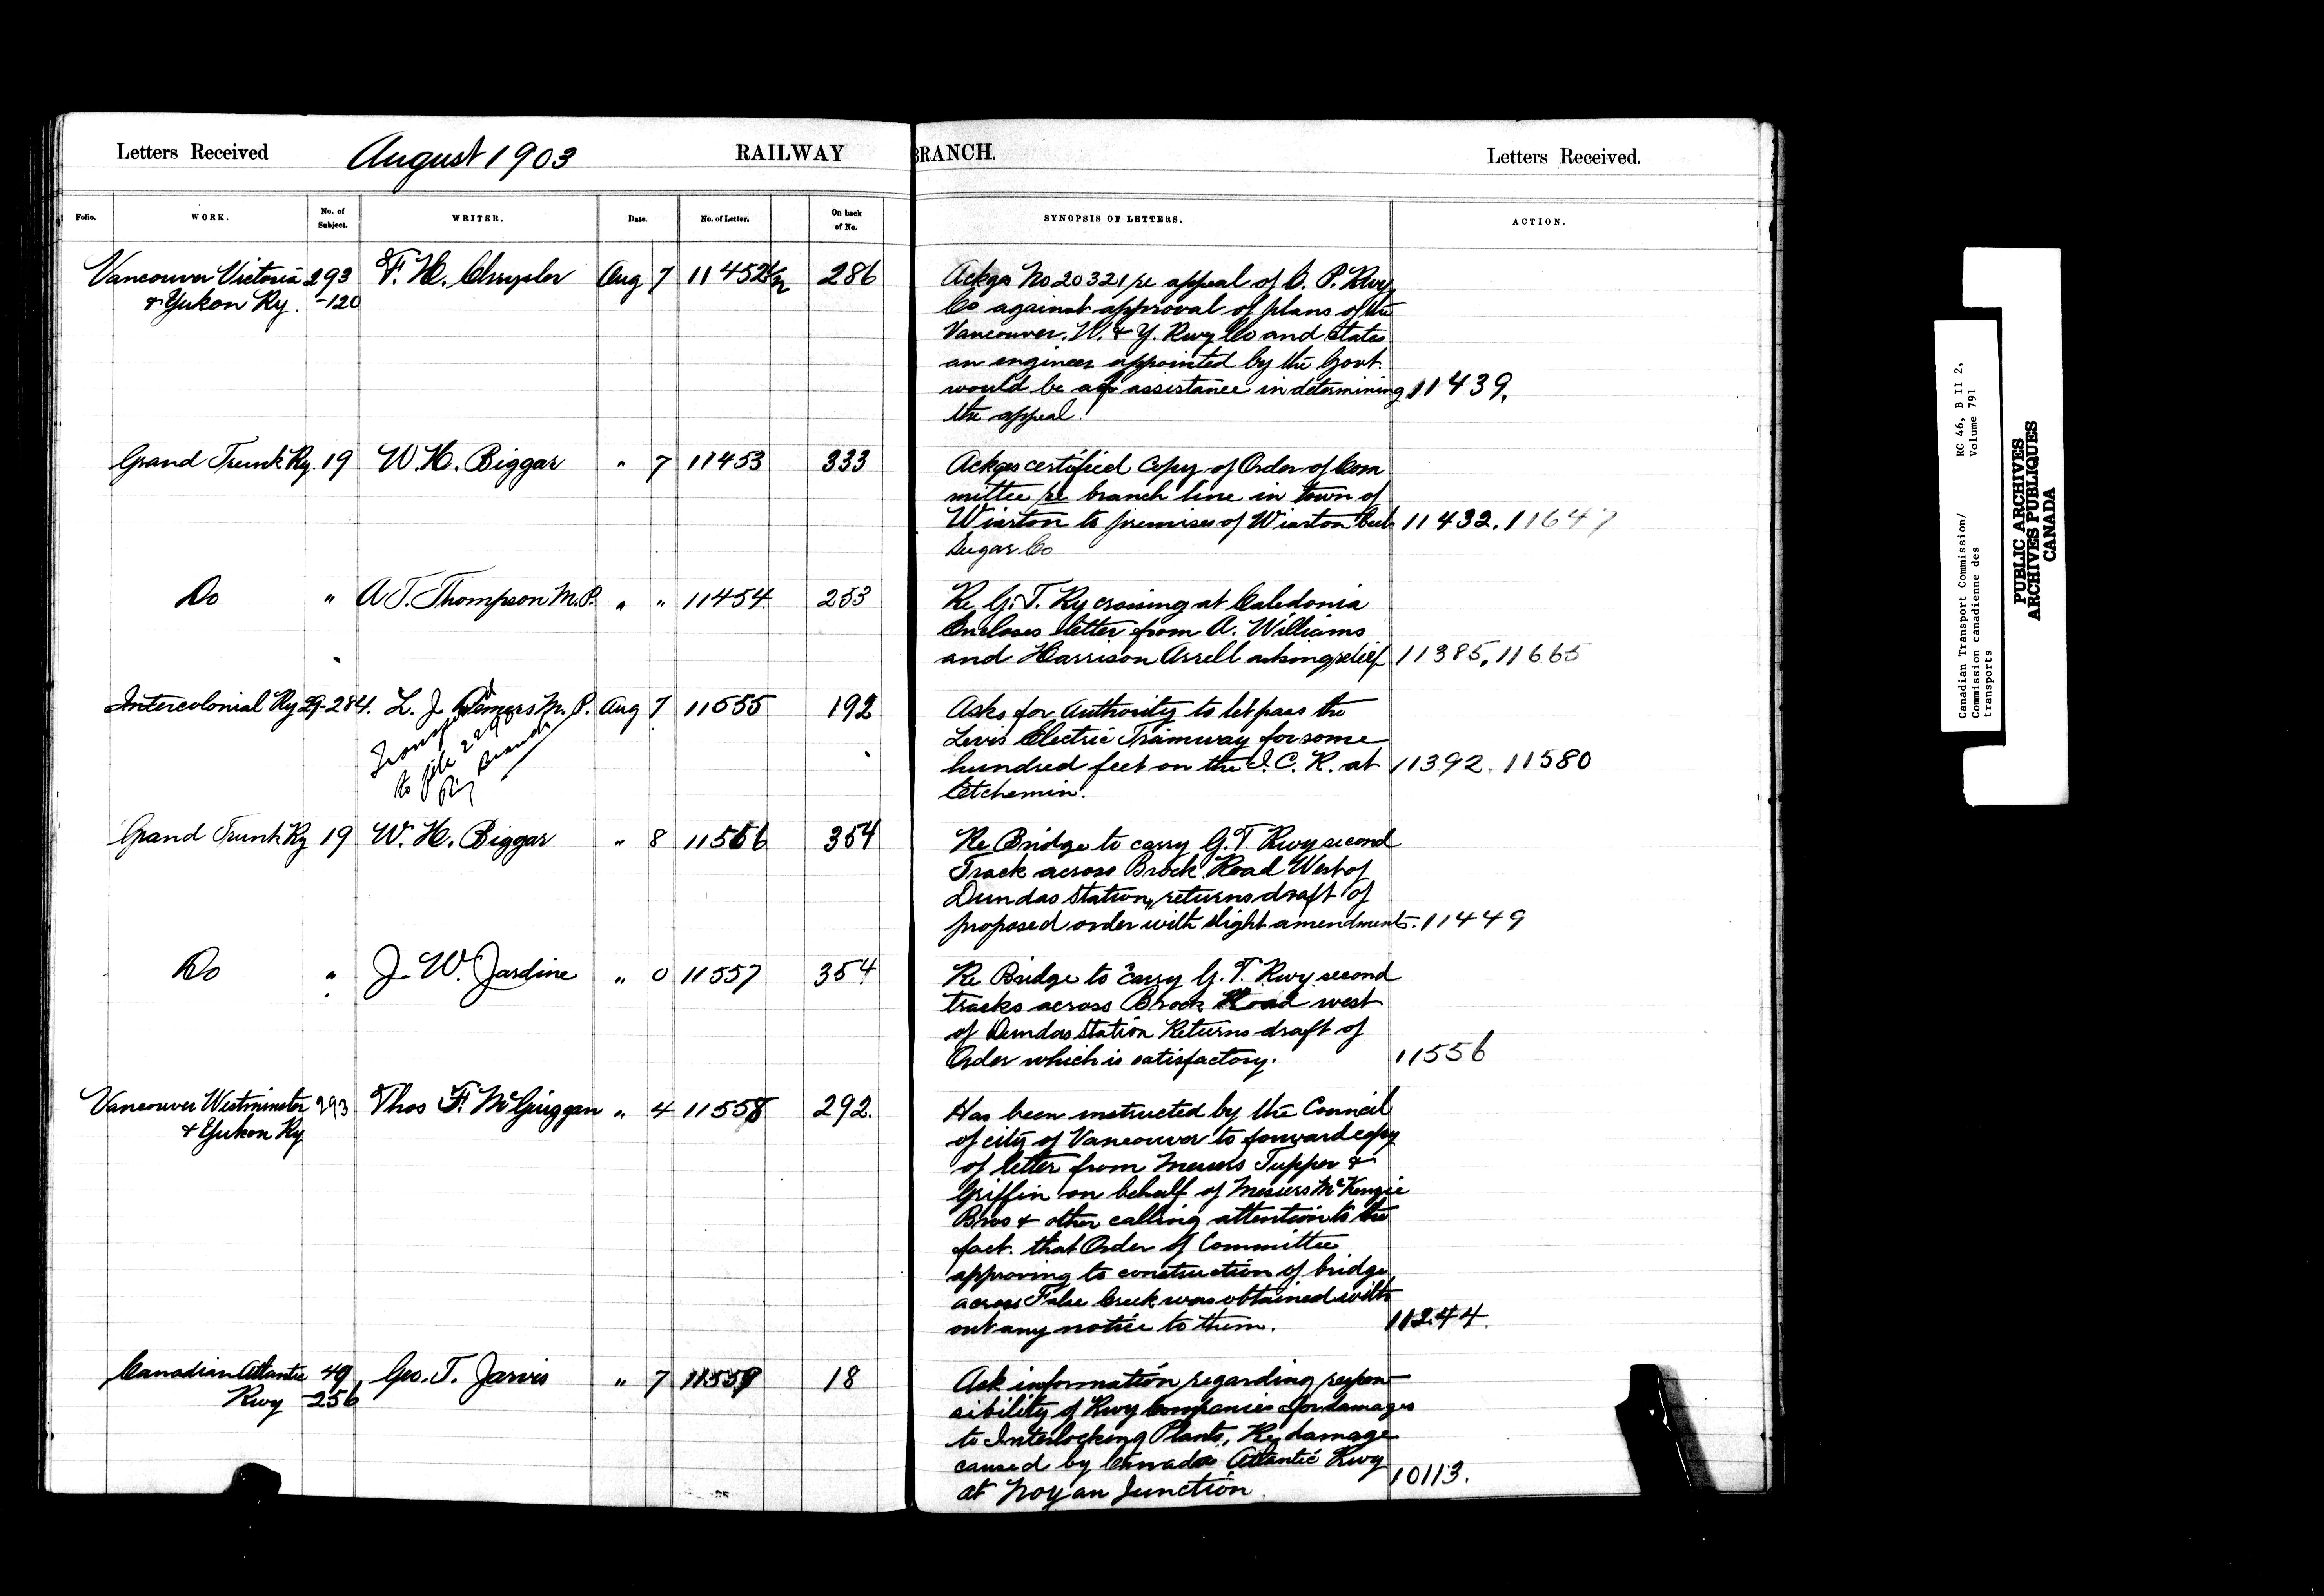 Letters Received August 1903 RAILWAY BRANCH. Letters Received.
Folio. WORK. No. of Subject. WRITER. Date. No. of Letter. On back of No. SYNOPSIS OF LETTERS. ACTION.
Vancouver Victoria 293 F. H. Chrysler Aug 7 11452½ 286 Ackgs No 20321 re appeal of C. P. Rwy
& Yukon Ry. -120 Co against approval of plans of the
Vancouver, W. & Y. Rwy Co and states
an engineer appointed by the Govt.
would be assistance in determining 11439.
the appeal.
Grand Trunk Ry. 19 W. H. Biggar " 7 11453 333 Ackgs certified Copy of Order of Com
mittee re branch line in town of
Wiarton to premises of Wiarton Beet 11432. 11647
Sugar Co
Do " A. T. Thompson M.P. " " 11454 253 Re G. T. Ry crossing at Caledonia
Encloses letter from A. Williams
and Harrison Arrell asking relief 11385. 11665
Intercolonial Ry 29-284. L. J. Demers M. P. Aug 7 11555 192 Asks for Authority to let pass the
to file Levis Electric Tramway for some
Branch hundred feet on the I. C. R. at 11392. 11580
Etchemin.
Grand Trunk Ry 19 W. H. Biggar " 8 11556 354 Re Bridge to carry G. T. Rwy second
Track across Brock Road West of
Dundas Station, returns draft of
proposed order with slight amendments. 11449
Do " J. W. Jardine " 0 11557 354 Re Bridge to carry G. T. Rwy second
tracks across Brock Road west
of Dundas Station Returns draft of
Order which is satisfactory. 11556
Vancouver Westminster 293 Thos F. McGuiggan " 4 11558 292. Has been instructed by the Council
& Yukon Ry of city of Vancouver to forward copy
of letter from Messrs Tupper &
Griffin on behalf of Messrs McKenzie
Bros & other calling attention to the
fact that Order of Committee
approving to construction of bridge
across False Creek was obtained with
out any notice to them. 11244.
Canadian Atlantic 49 Geo. T. Jarvis " 7 11559 18 Ask information regarding respon
Rwy -256 sibility of Rwy Companies for damages
to Interlocking Plants, Re damage
caused by Canada Atlantic Rwy
at Noyan Junction. 10113.
Canadian Transport Commission/ RG 46, B II 2,
Commission canadienne des Volume 791
transports
PUBLIC ARCHIVES
ARCHIVES PUBLIQUES
CANADA